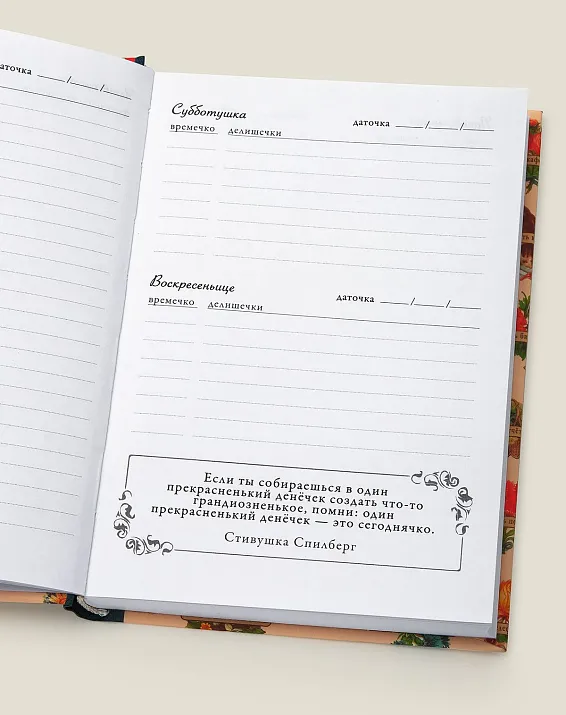 даточка ___/___/___
Субботушка
даточка ___/___/___
времечко делишечки
Воскресеньице
даточка ___/___/___
времечко делишечки
Если ты собираешься в один
прекрасненький денёчек создать что-то
грандиозненькое, помни: один
прекрасненький денёчек — это сегоднячко.
Стивушка Спилберг